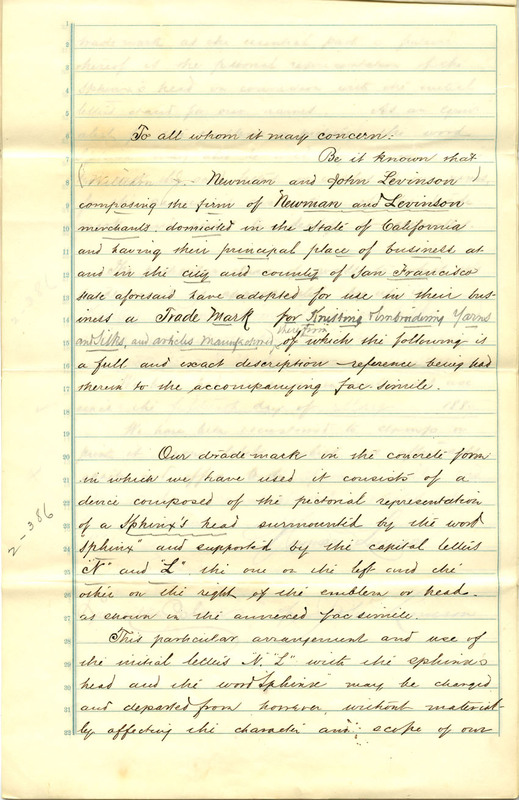 To all whom it may concern:
Be it known that
( William J. Newman and John Levinson )
composing the firm of "Newman and Levinson
merchants. domiciled in the State of California
and having their principal place of business at
and in the city and county of San Francisco
state aforesaid have adopted for use in their bus-
iness a Trade Mark for Knitting & Embroidering Yarns
and Silks, and articles manufactured therefrom, of which the following is
a full and exact description - reference being had
therein to the accompanying fac. simile.
Our trade mark in the concrete form
in which we have used it consists of a
device composed of the pictorial representation
of a Sphinx's head surmounted by the word
Sphinx" and supported by the capital letters
"N" and "L". the one on the left and the
other on the right of the emblem or head.
as shown in the annexed fac simile.
This particular arrangement and use of
the initial letters N. "L" with the sphinx's
head and the word Sphinx may be changed
and departed from however, without material-
ly affecting the character and scope of our
2-386